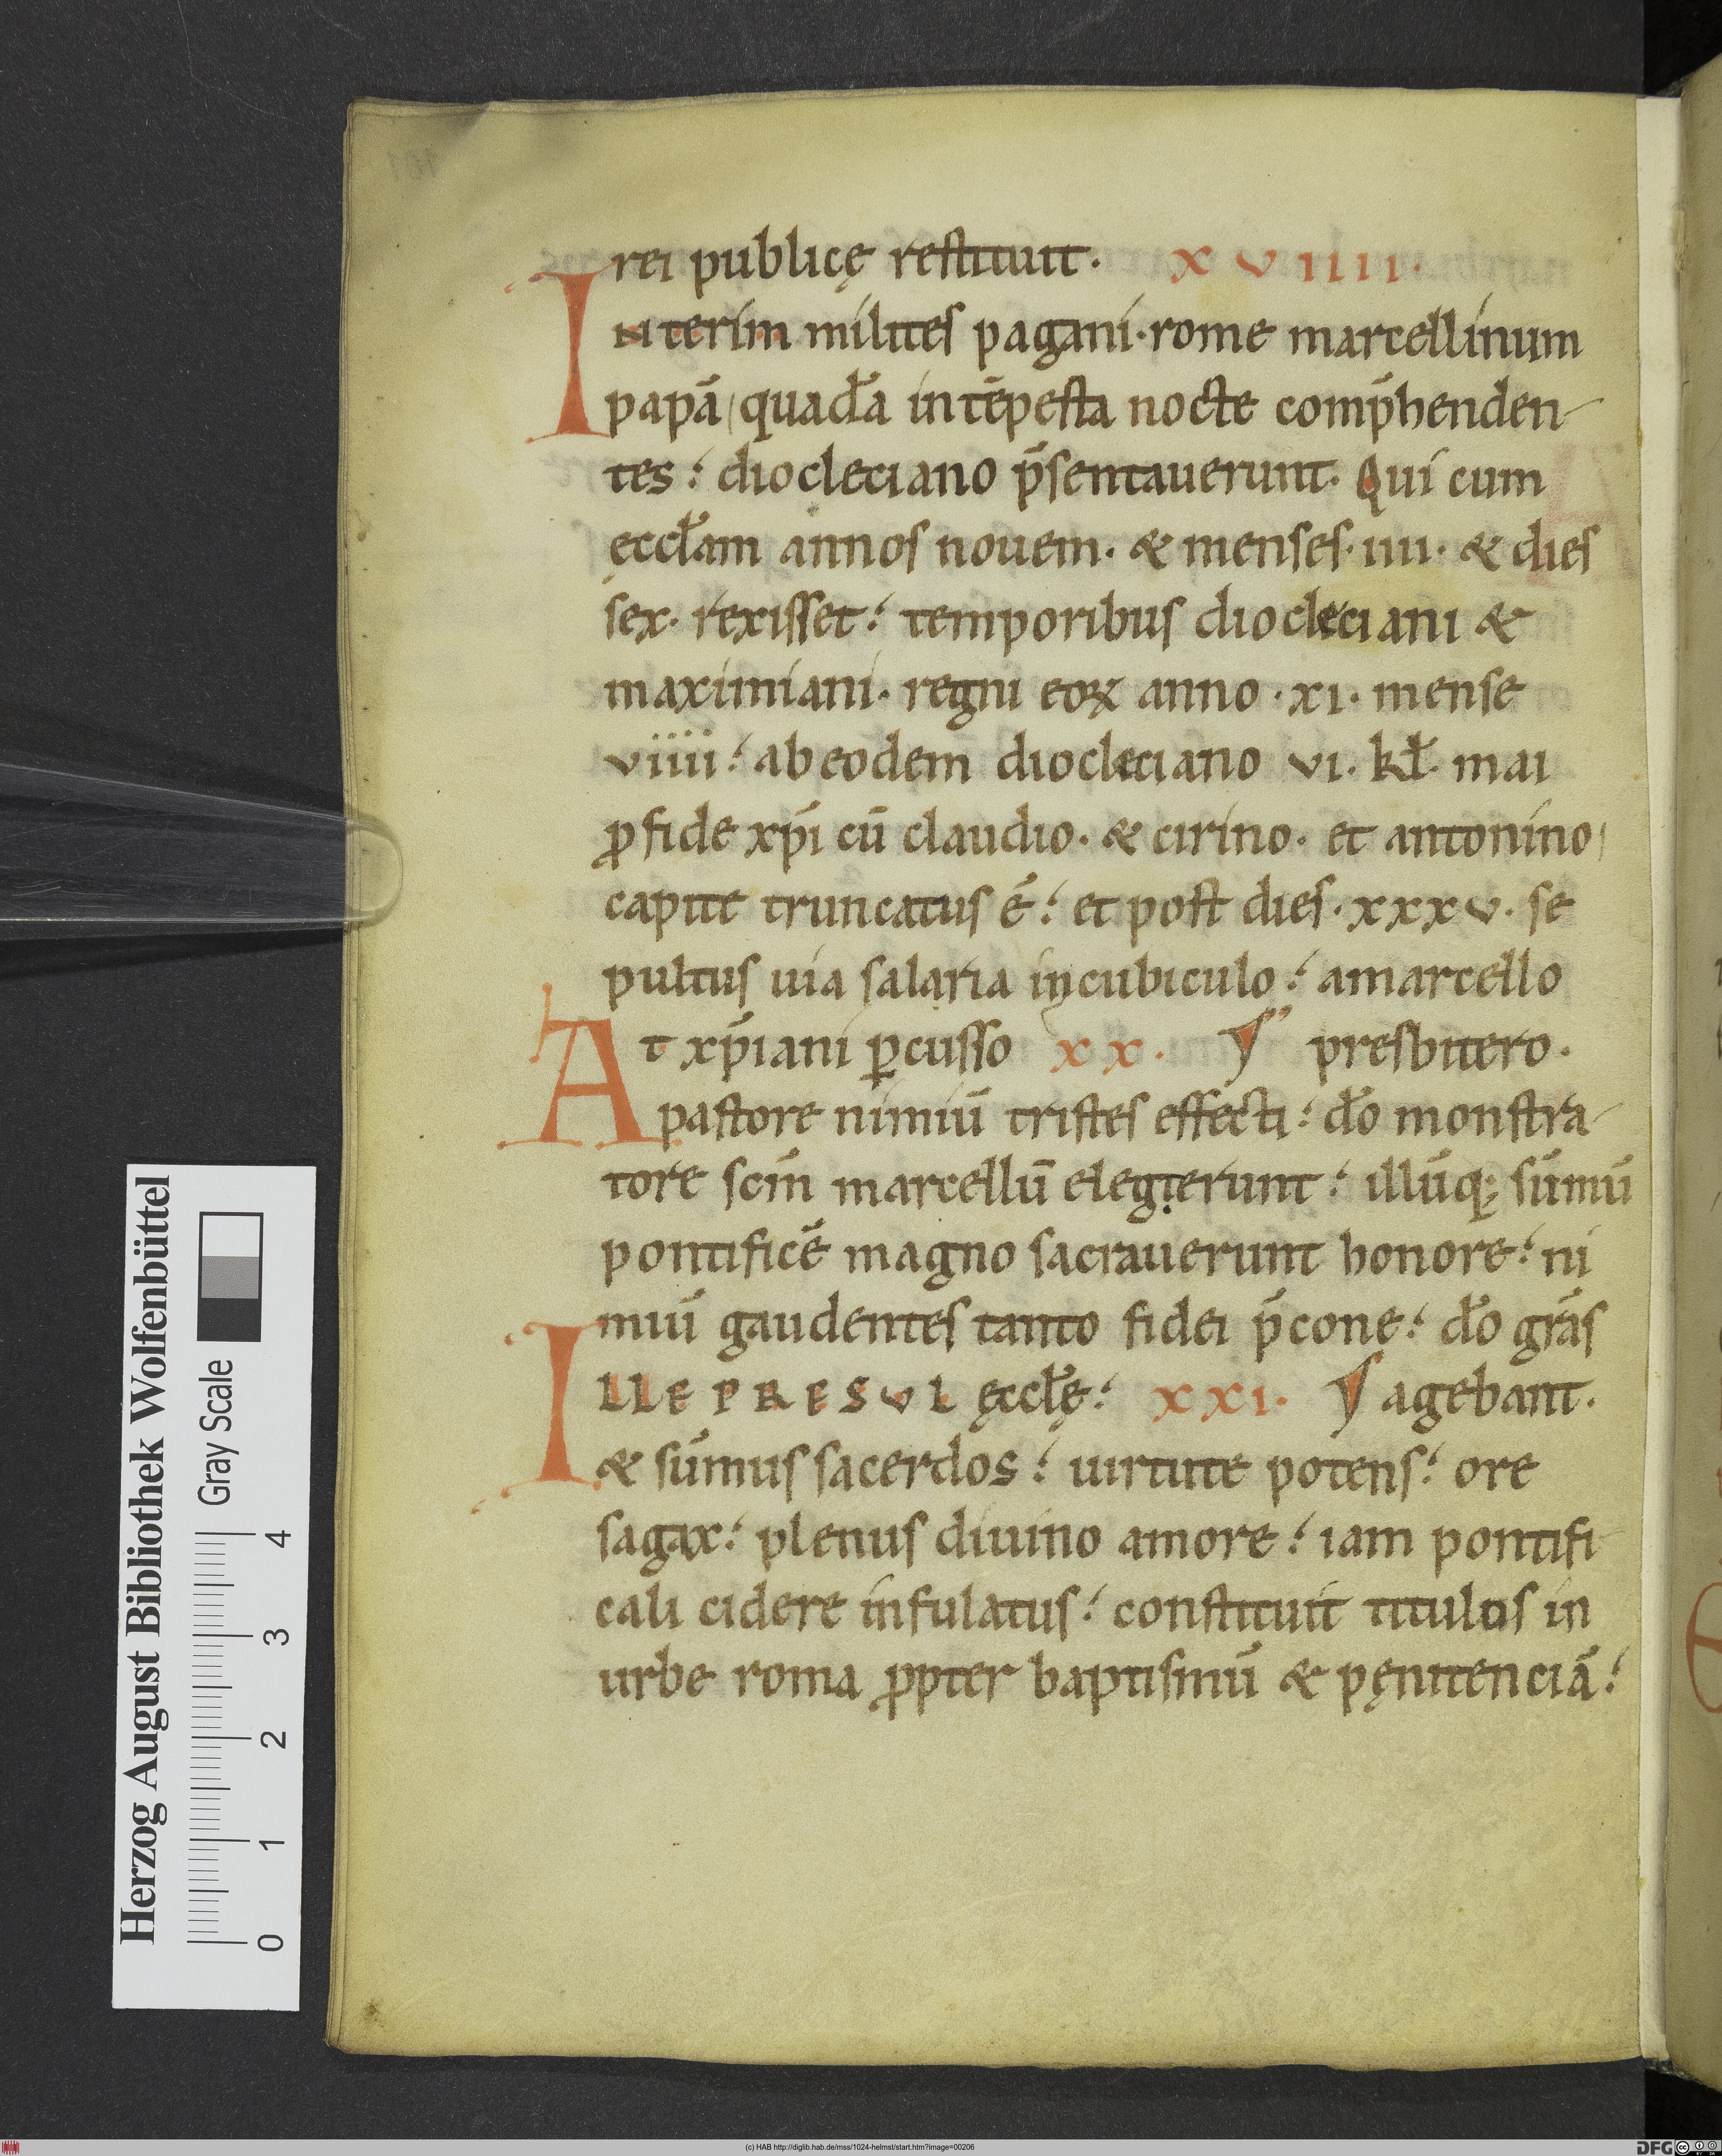 rei publicę restituit. XVIIII.
Interim milites pagani·rome marcellinum
papā quadā intēpesta nocte comp̄henden-
tes: diocleciano p̄sentauerunt. Qui cum
eccłam annos nouem. & menses·iiii· & dies
sex. rexisset: temporibus diocleciani &
maximiani. regni eoꝝ anno ·xi· mense
viiii: ab eodem diocleciano vi. kł. mai
ꝓ fide xp̄i cū claudio. & cirino. et antonino
capite truncatus ē: et post dies·xxxv· se
pultus uia salaria in cubiculo: a marcello
At xp̄iani ꝑcusso XX. presbitero.
pastore nimiū tristes effecti: do monstra-
tore scm̄ marcellū elegierunt: illūq; sūmū
pontificē magno sacrauerunt honore: ni
miū gaudentes tanto fidei p̄cone: do grās
ILLE PRESVL ęccłę: XXI. agebant.
& sūmus sacerdos: uirtute potens: ore
sagax: plenus diuino amore: iam pontifi-
cali cidere infulatus: constituit titulos in
urbe roma ꝓpter baptismū & pęnitenciā:
Herzog August Bibliothek Wolfenbüttel
Gray Scale
0 1 2 3 4
(c) HAB http://diglib.hab.de/mss/1024-helmst/start.htm?image=00206
DFG